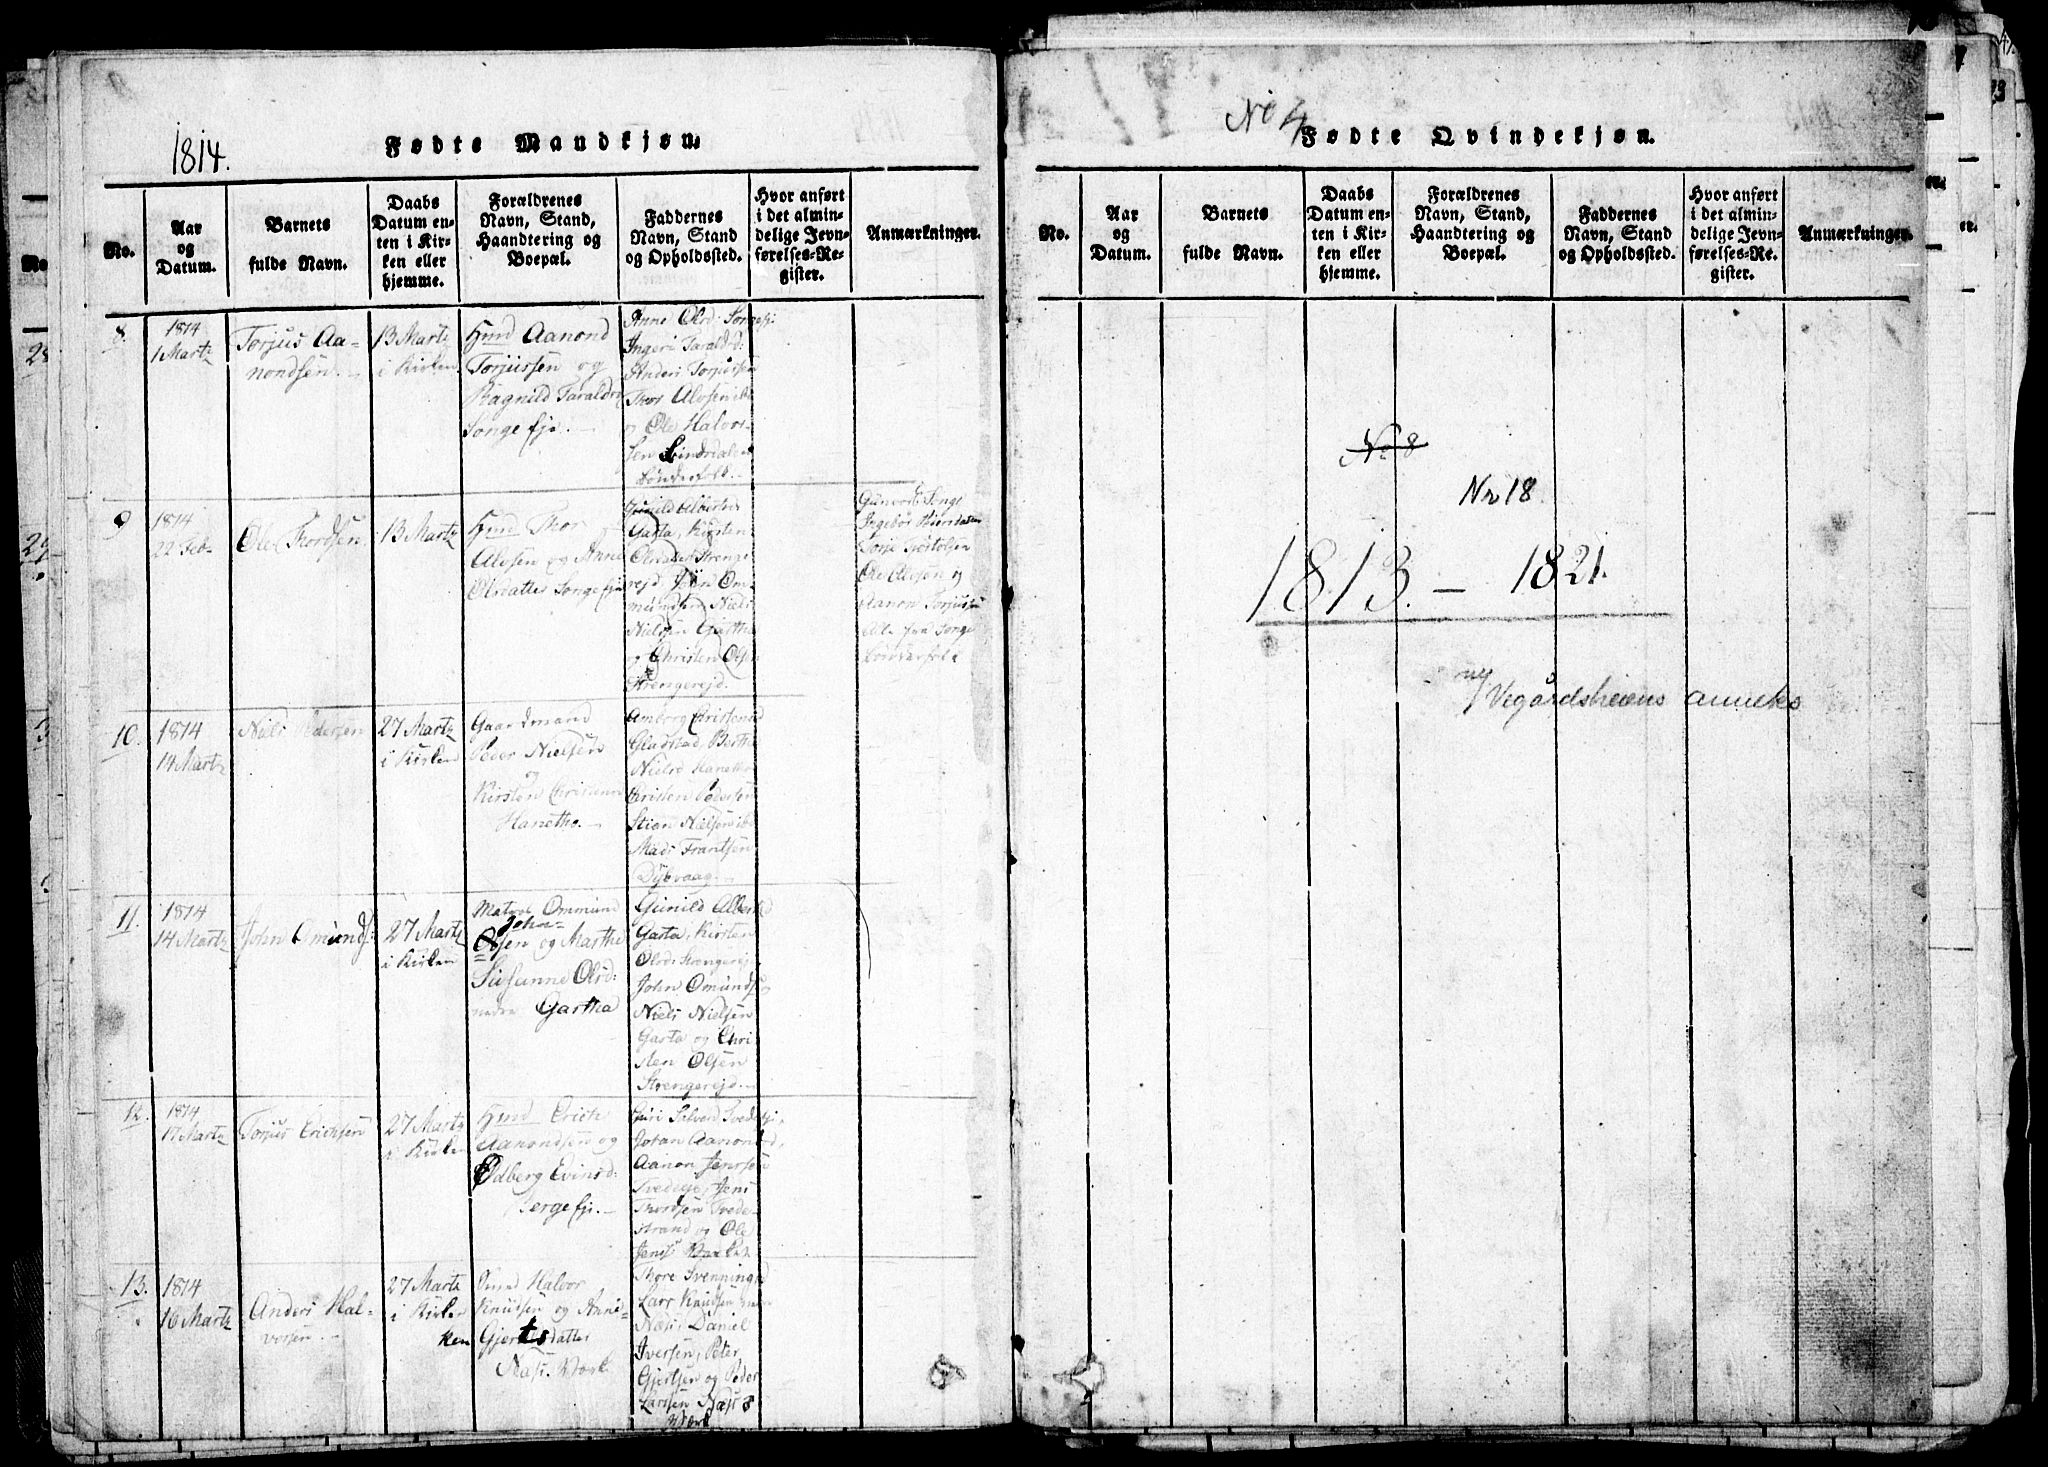 1814.
Fødte Mandkjøn.
No.
Aar
og
Datum.
Barnets
fulde Navn.
Daabs
Datum en-
ten i Kir-
ken eller
hjemme.
Forældrenes
Navn, Stand,
Haandtering og
Boepæl.
Faddernes
Navn, Stand
og Opholdssted.
Hvor anført
i det almin-
delige Jevn-
førelses-Re-
gister.
Anmærkninger.
8.
1814
1 Martz
Torjus Aa-
nondsen.
13 Martz
i Kirken
Hmd Aanond
Torjussen og
Ragnild Taraldsd
Songe fji.
Anne Olsd: Songefji
Ingeri Taraldsd:
Anders Torjussen
Thor Alofsen ibd
og Ole Halvor-
sen
bønderfolk.
9
1814
22 Feb
Ole Thordsen
13 Martz
Hmd Thor
Alofsen og Anne
Olsdatter Songe fji
Gunild Albertsd
Garta, Kirsten
Olsdatter Strenge-
rejd John Om-
mundsen Niels
Nielsen Gartha
og Christen Olsen
Strengerejd.
Gunvor Songe
Ingebor
Torje Tostolsen
Ole Olsen og
Aanon Torjussen
Alle fra Songe
bønderfolk
10.
1814
14 Martz
Niels Pedersen
27 Martz
i Kirken
Gaardmand
Peder Nielsen
og
Kirsten Christensd
Hanetho.
Amborg Christensd
Gladstad, Berthe
Nielsd Hanetho
Christen Pedersen
Stian Nielsen ibd
Mads Frantsen
Dybvaag.
11.
1814
14 Martz
John Omunds:
27 Martz
i Kirken
Matros Ommund
John-
Olsen og Marthe
Susanne Olsd:
nedre Gartha
Gunild Albertsd
Garta, Kirsten
Olsd: Strengerejd
John Omunds og
Niels Nielsen
Garta og Chri-
sten Olsen
Strengerejd.
12.
1814
17 Martz
Torjus Erichsen
27 Martz
i Kirken
Hmd Erich
Aanondsen og
Edberg Evinsd:
Berge fji.
Guri Salvesd Tvedefji,
Johan Aanonsd,
Aanon Jenssen
Tvedefji, Jens
Thordsen Tvede-
strand og Ole
Jens
13.
1814
16 Martz
Anders Hal-
vorsen
27 Martz
i Kirken
ken
Smed Halvor
Knudsen og Anne
Gjertsdatter
Næss Værk
Thore Svenningsd
Lars Knudsen
Næss, Daniel
Iversen, Peter
Gjertsen og Peder
Larssen Næss
Værk
No 4
Fødte Qvindekjøn.
No.
Aar
og
Datum.
Barnets
fulde Navn.
Daabs
Datum en-
ten i Kir-
ken eller
hjemme.
Forældrenes
Navn, Stand,
Haandtering og
Boepæl.
Faddernes
Navn, Stand
og Opholdssted.
Hvor anført
i det almin-
delige Jevn-
førelses-Re-
gister.
Anmærkninger.
No 8
Nr 18.
1813. – 1821.
Vegårdsheiens anneks